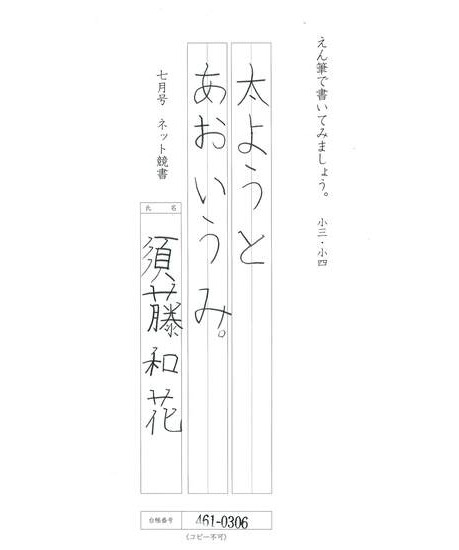 えん筆で書いてみましょう。 小三・小四
太ようと
あおいうみ。
七月号 ネット競書
氏 名
須藤和花
台帳番号 461-0306
(コピー不可)